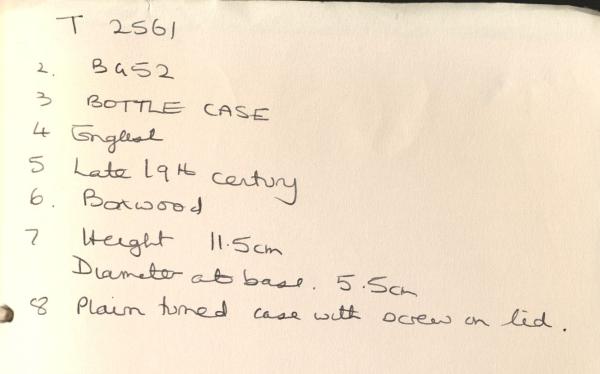 T 2561
2. BG52
3 BOTTLE CASE
4 English
5 Late 19th century
6. Boxwood
7 Height 11.5cm
Diameter at base. 5.5cm
8 Plain turned case with screw on lid.